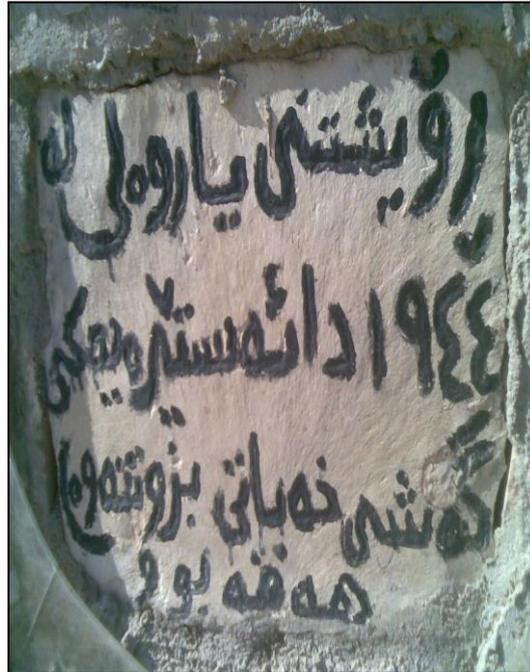 ڕۆیشتنی یاروەلی لە
١٩٤٤ دا ئەستێرەیەکی
گەشی خەباتی بزوتنەوەی
هەقە بوو